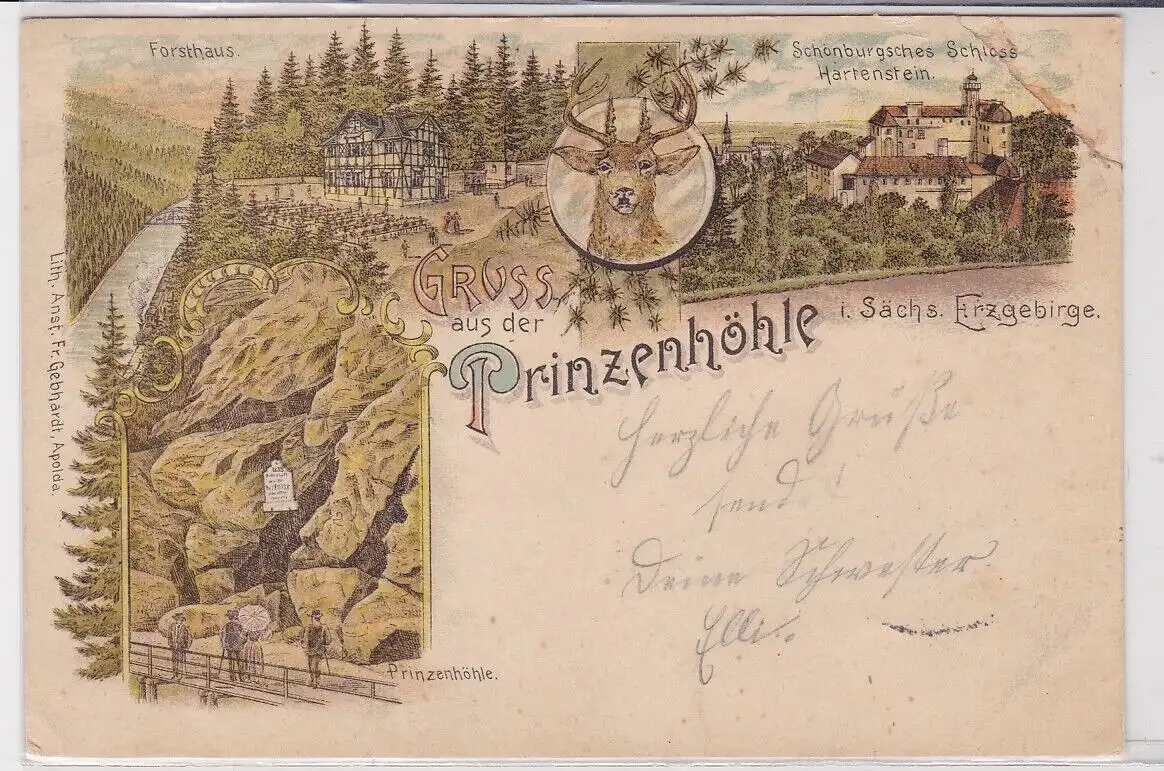 Forsthaus.
Schönburgsches Schloss
Hartenstein.
GRUSS
aus der
Prinzenhöhle
i. Sächs. Erzgebirge.
Lith. Anst. Fr. Gebhardt, Apolda.
Prinzenhöhle.
Herzliche Grüße
send.
Deine Schwester
Elli.